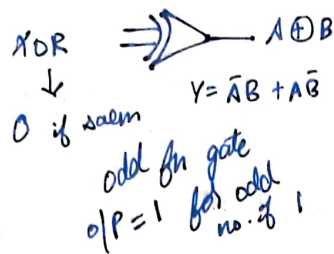 XOR
A⊕B
↓
Y = A̅B + AB̅
0 if saem
odd fn gate
o/P = 1 for odd
no. of 1